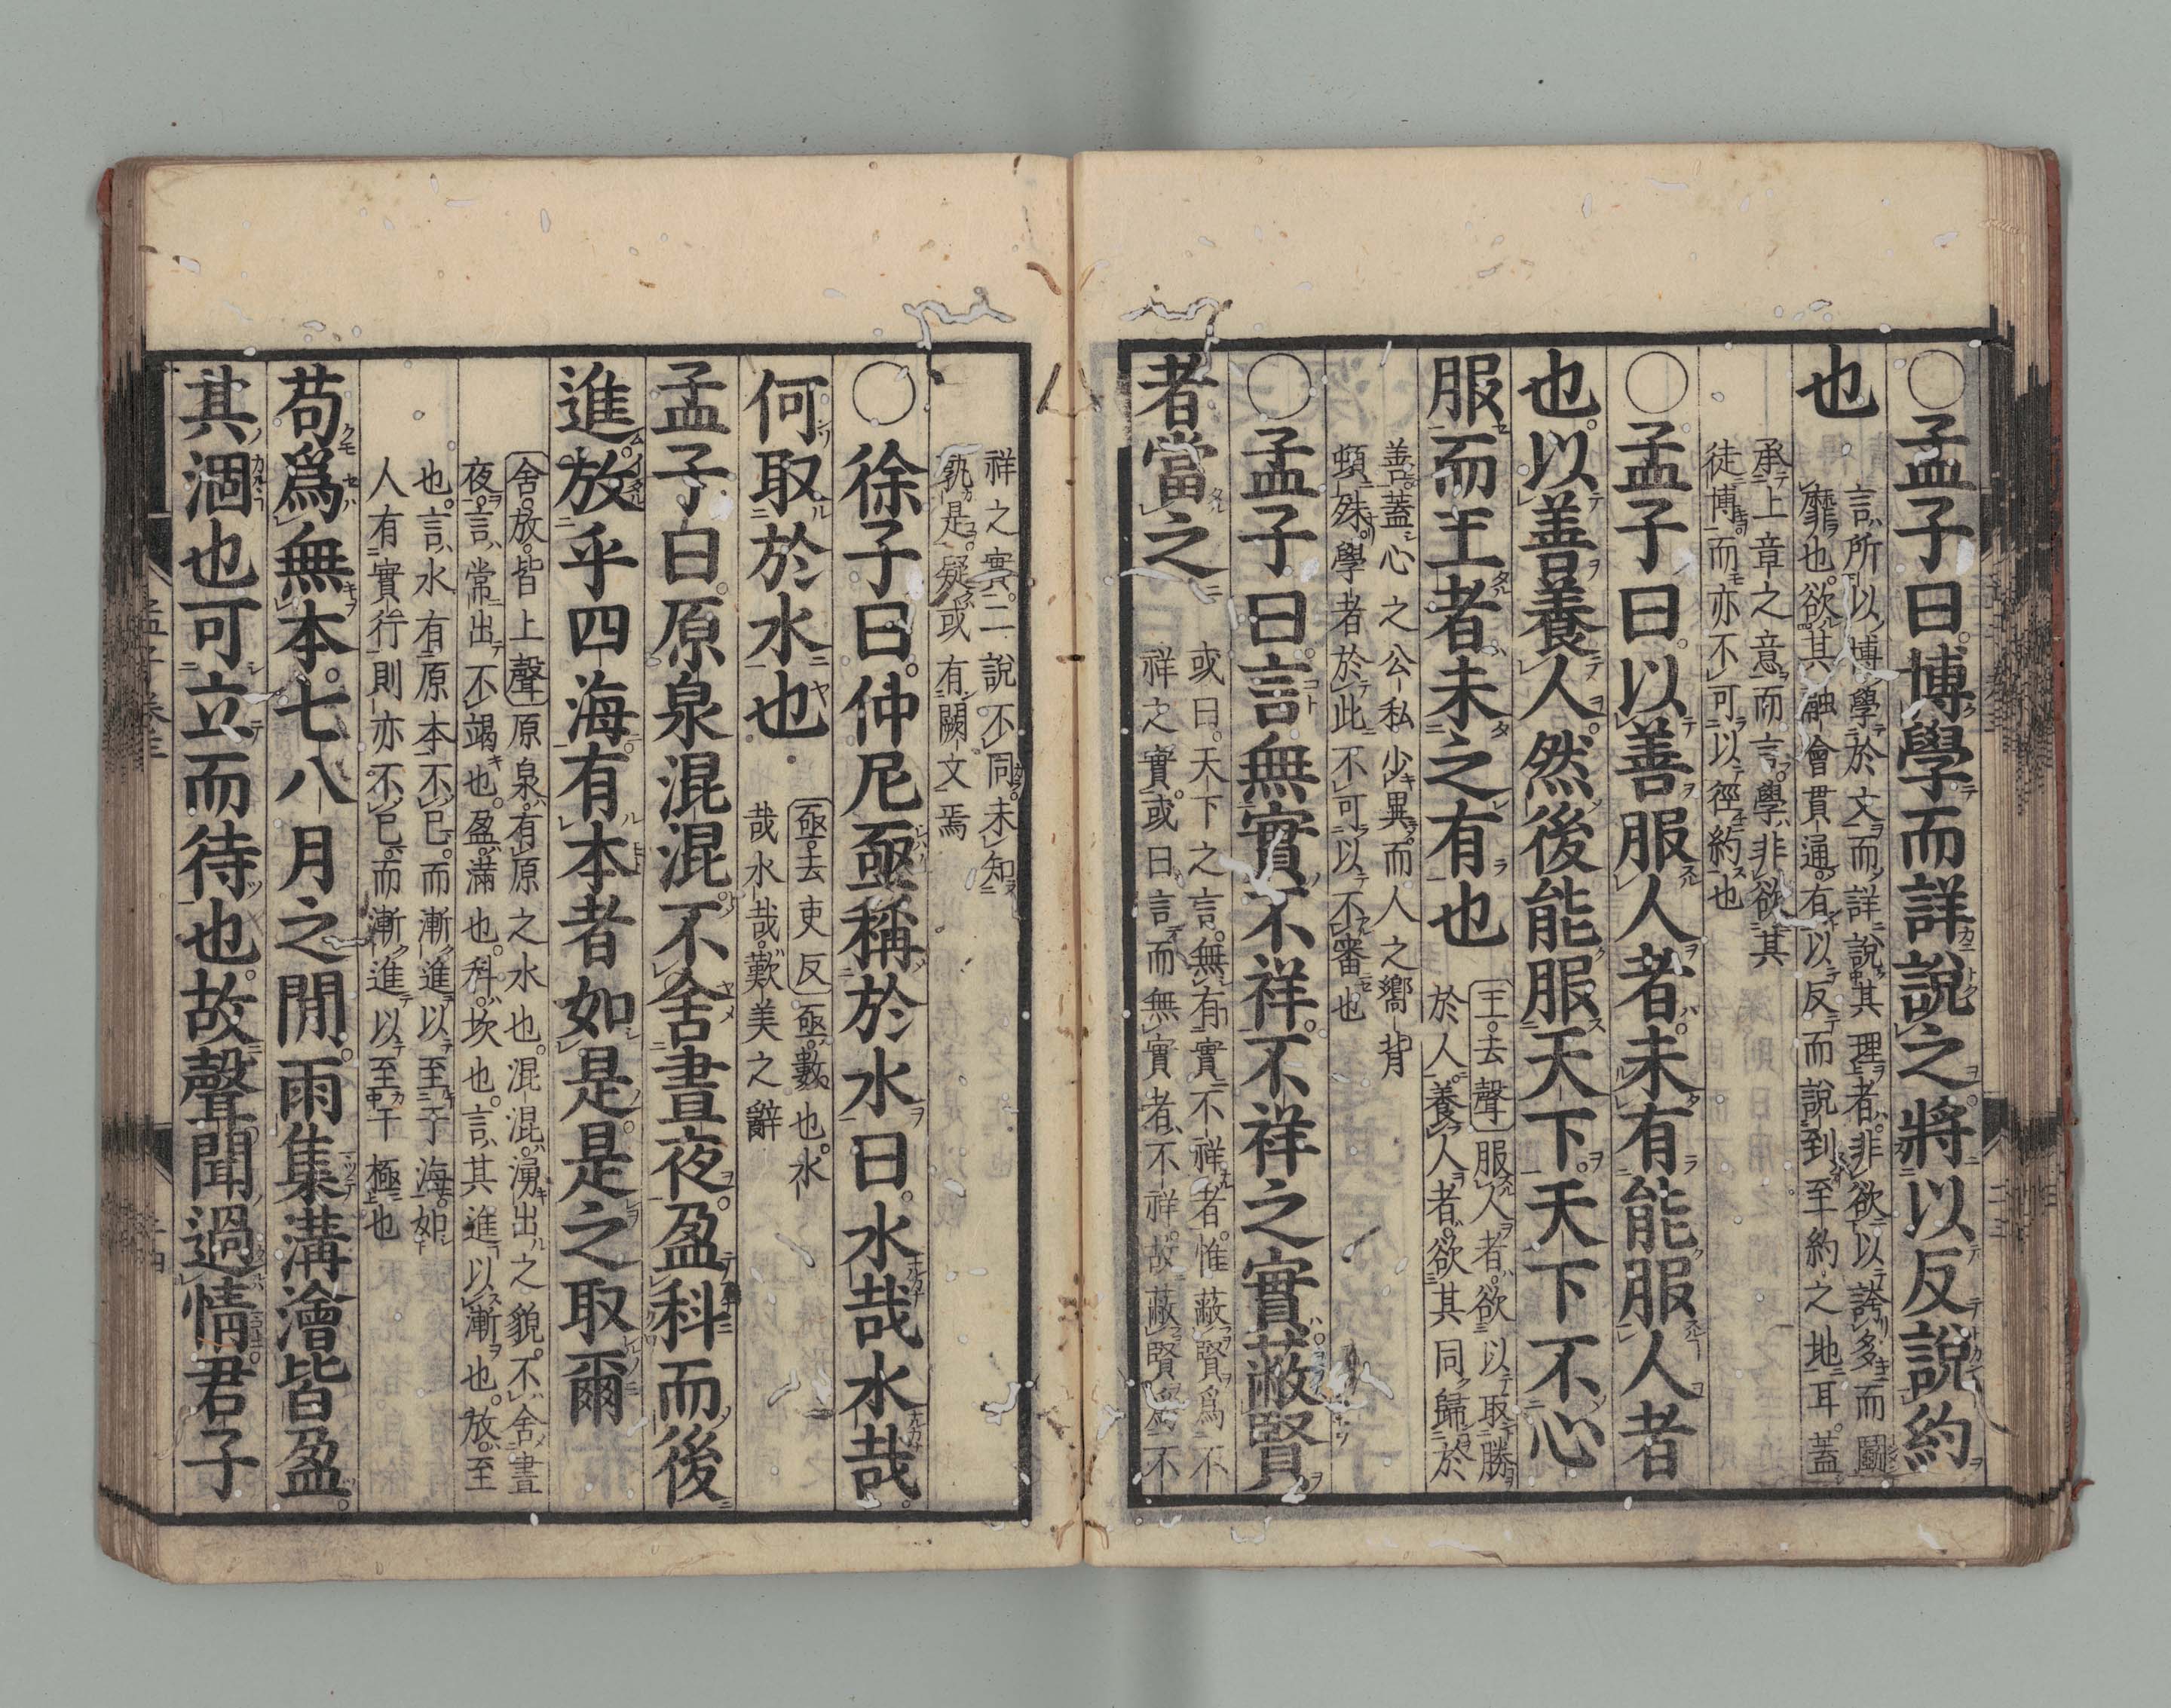 ○孟子曰博學而詳說之將以反說約
也
言所以博學於文而詳說其理者非欲以誇多而鬬
靡也欲其融會貫通有以反而說到至約之地耳蓋
承上章之意而言學非欲其
徒博而亦不可以徑約也
○孟子曰以善服人者未有能服人者
也以善養人然後能服天下天下不心
服而王者未之有也
王去聲服人者欲以取勝
於人養人者欲其同歸於
善蓋心之公私少異而人之嚮背
頓殊學者於此不可以不審也
○孟子曰言無實不祥不祥之實蔽賢
者當之
或曰天下之言無有實不祥者惟蔽賢爲不
祥之實或曰言而無實者不祥故蔽賢爲不
祥之實二說不同未知
孰是疑或有闕文焉
○徐子曰仲尼亟稱於水曰水哉水哉
何取於水也
亟去吏反亟數也水
哉水哉歎美之辭
孟子曰原泉混混不舍晝夜盈科而後
進放乎四海有本者如是是之取爾
舍放皆上聲原泉有原之水也混混湧出之貌不舍晝
夜言常出不竭也盈滿也科坎也言其進以漸也放至
也言水有原本不已而漸進以至于海如
人有實行則亦不已而漸進以至于極也
苟爲無本七八月之閒雨集溝澮皆盈
其涸也可立而待也故聲聞過情君子